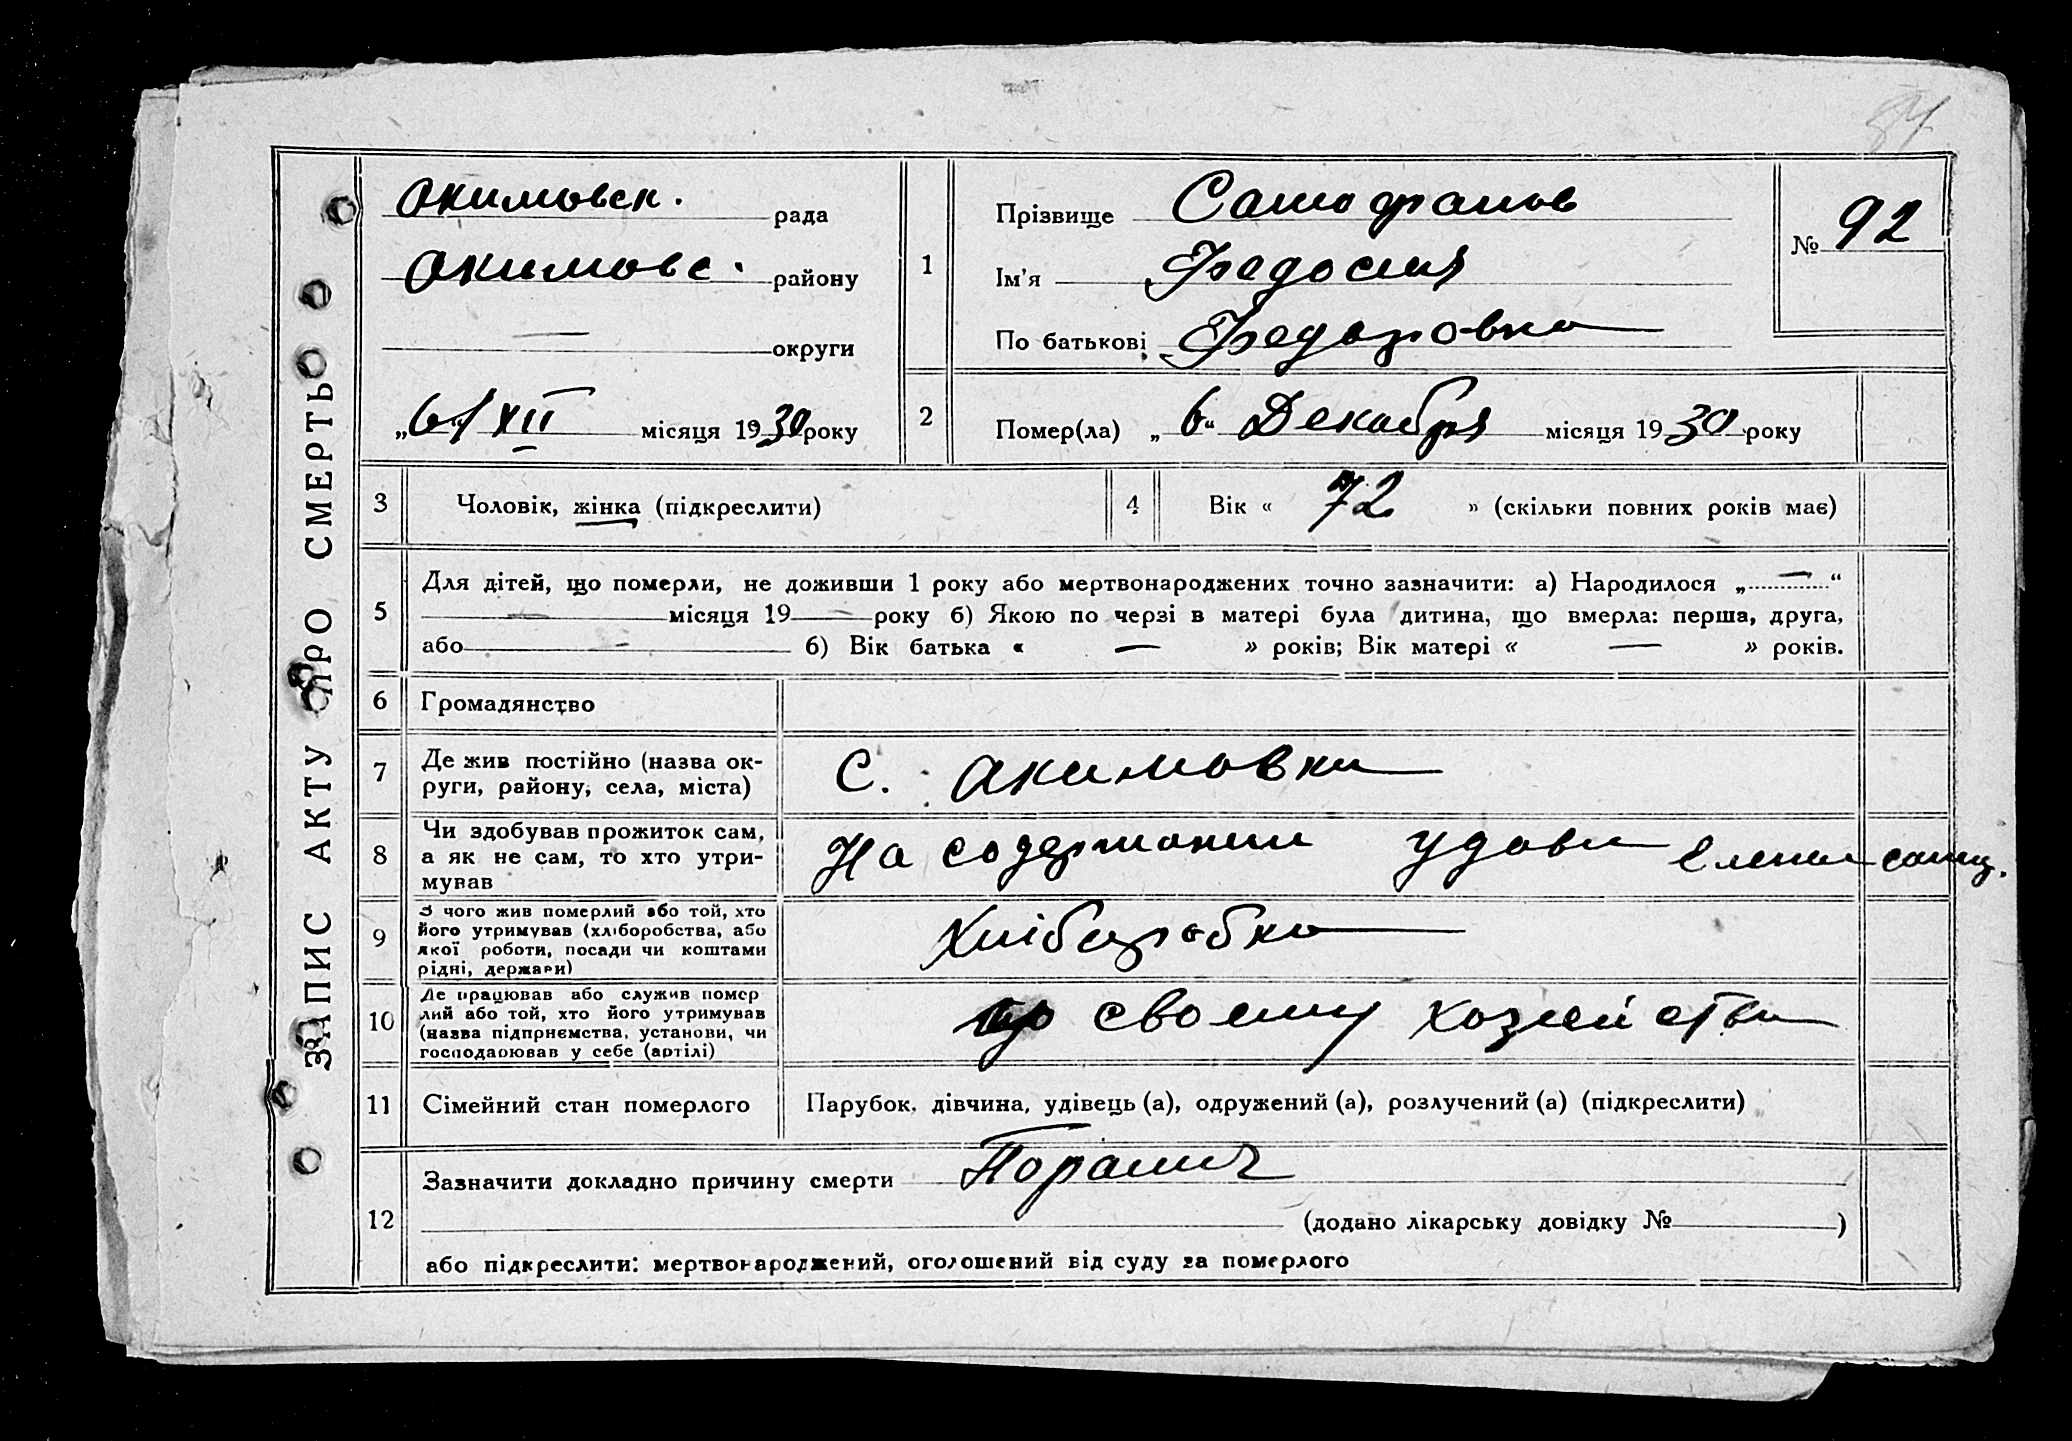 84
ЗАПИС АКТУ ПРО СМЕРТЬ
Акимовск. рада
Акимовс. району
— округи
„6/XII місяця 1930 року
1
Прізвище
Ім'я Федосия
По батькові Федоровна
№ 92
2 Помер(ла) „6" Декабря місяця 1930 року
3 Чоловік, жінка (підкреслити)
4 Вік « 72 » (скільки повних років має)
5
Для дітей, що померли, не доживши 1 року або мертвонароджених точно зазначити: а) Народилося „ — "
— місяця 19 — року б) Якою по черзі в матері була дитина, що вмерла: перша, друга,
або — б) Вік батька « — » років; Вік матері « — » років.
6 Громадянство
7 Де жив постійно (назва ок-
руги, району, села, міста)
С. Акимовка
8 Чи здобував прожиток сам,
а як не сам, то хто утри-
мував
На содержании Елени
9 З чого жив померлий або той, хто
його утримував (хліборобства, або
якої роботи, посади чи коштами
рідні, держави)
Хлібаробка
10 Де працював або служив помер
лий або той, хто його утримував
(назва підприємства, установи, чи
господарював у себе (артілі)
своему хозяйства
11 Сімейний стан померлого
Парубок, дівчина, удівець (а), одружений (а), розлучений (а) (підкреслити)
12
Зазначити докладно причину смерти
(додано лікарську довідку № )
або підкреслити: мертвонароджений, оголошений від суду за померлого